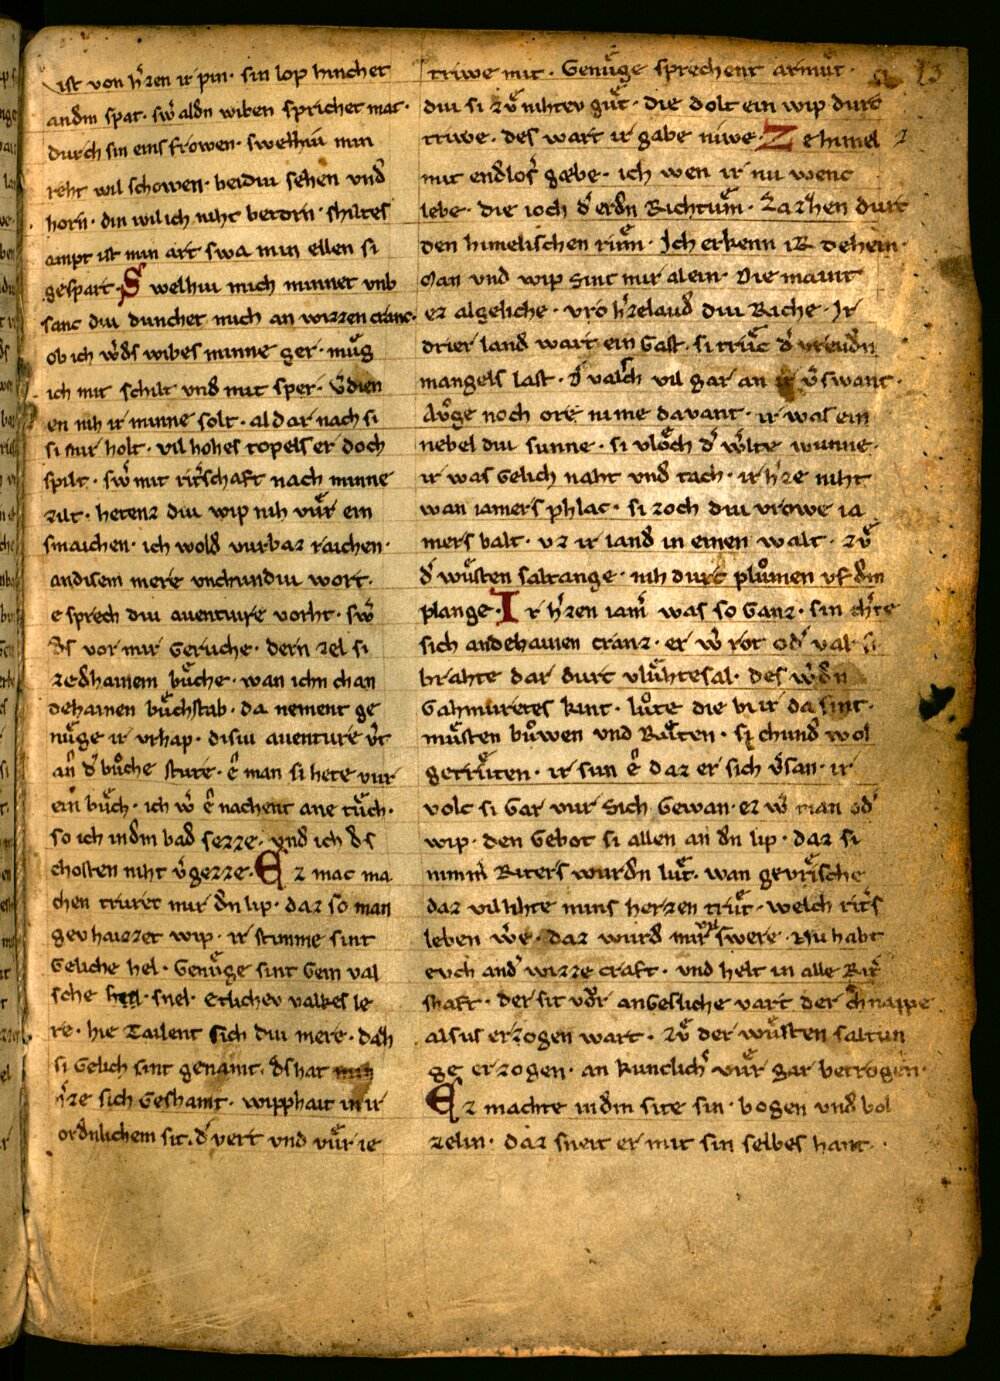 ist von h'zen ir pin · sin lop hinchet
andm spat · sw' aldn wiben sprichet mat ·
durch sin eins frowen · swelhiu min
reht wil schowen · beidiu sehen und
horn · din wil ich niht betorn · shiltes
ampt ist min art swa min ellen si
gespart · Swelhiu mich minnet vnb
sanc diu dunchet mich an wizzen cranc ·
ob ich w'ds wibes minne ger · müg
ich mit schilt und mit sper · v'dien
en nih ir minne solt · al dar nach si
si mir holt · vil hohes topels er doch
spilt · sw' mit rit'schaft nach minne
zilt · hetenz diu wip nih vür ein
smaichen · ich wold vurbaz raichen ·
andisem mere vnchundiu wort ·
e sprech diu auenture vorht · sw'
ds vor mir geruche · dern zel si
zedhainem büche · wan ichn chan
dehainen büchstab · da nement ge
nüge ir vrhap · disiu auenture v't
an d' büche sture · ê man si hete vur
ein büch · ich w' ê nachent ane tüch ·
so ich indm bad sezze · und ich ds
chosten niht v'gezze · Ez mac ma
chen truret mir dn lip · daz so man
gev haizzet wip · ir stimme sint
geliche hel · Genüge sint gein val
sche snel · etlichev valses le
re · hie tailent sich diu mere · dah
si gelich sint genamt · ds hat min
h'ze sich geshamt · wipphait in ir
ordnlichem sit · d' vert vnd vür ie
triwe mit · Genüge sprechent armüt ·
diu si zü nihtev güt · die dolt ein wip durt
triwe · des wart ir gabe niwe · Ze himel
mit endlos' gæbe · ich wen ir nu wenc
lebe · die ioch d' erdn Richtüm · durt
den himelischen rüm · Ich erkenn iR dehein ·
Man vnd wip sint mir alein · Die mait
ez algeliche · vro h'zelaud diu Riche · Ir
drier land wart ein Gast · si trüc d' vreudn
mangels last · d' valsch vil gar an ir v'swant ·
Auge noch ore nime davant · ir was ein
nebel diu sunne · si vlöch d' w'lte wunne ·
ir was Gelich naht vnd tach · ir h'ze niht
wan iamers phlac · si zoch diu vrowe ia
mers balt · vz ir land in einen walt · zü
d' wüsten saltange · nih durt plümen vf dm
plange · Ir h'zen iam' was so Ganz · sin ch'te
sich andehainen cranz · er w' rot od' val · si
brahte dar durt vlühtesal · des w'dn
Gahmuretes kint · lüte die bi ir da sint ·
müsten büwen vnd Rüten · si chund wol
getrüten · ir sun ê daz er sich v'san · ir
volc si Gar vur sich Gewan · ez w' man od'
wip · den Gebot si allen an dn lip · daz si
nimm' Riters wurdn lüt · wan gevrische
daz vil lihte mins herzen trüt · welch rit's
leben w'e · daz wurd mir swere · Nu habt
euch and' wizze craft · vnd helt in alle Rit'
shaft · der sit vür angesliche vart der chnappe
alsus erzogen wart · zü der wüsten saltun
ge erzogen · an kunclich' vür gar betrogen ·
Ez machte indm site sin · bogen und bol
zelin · daz sneit er mit sin selbes hant ·